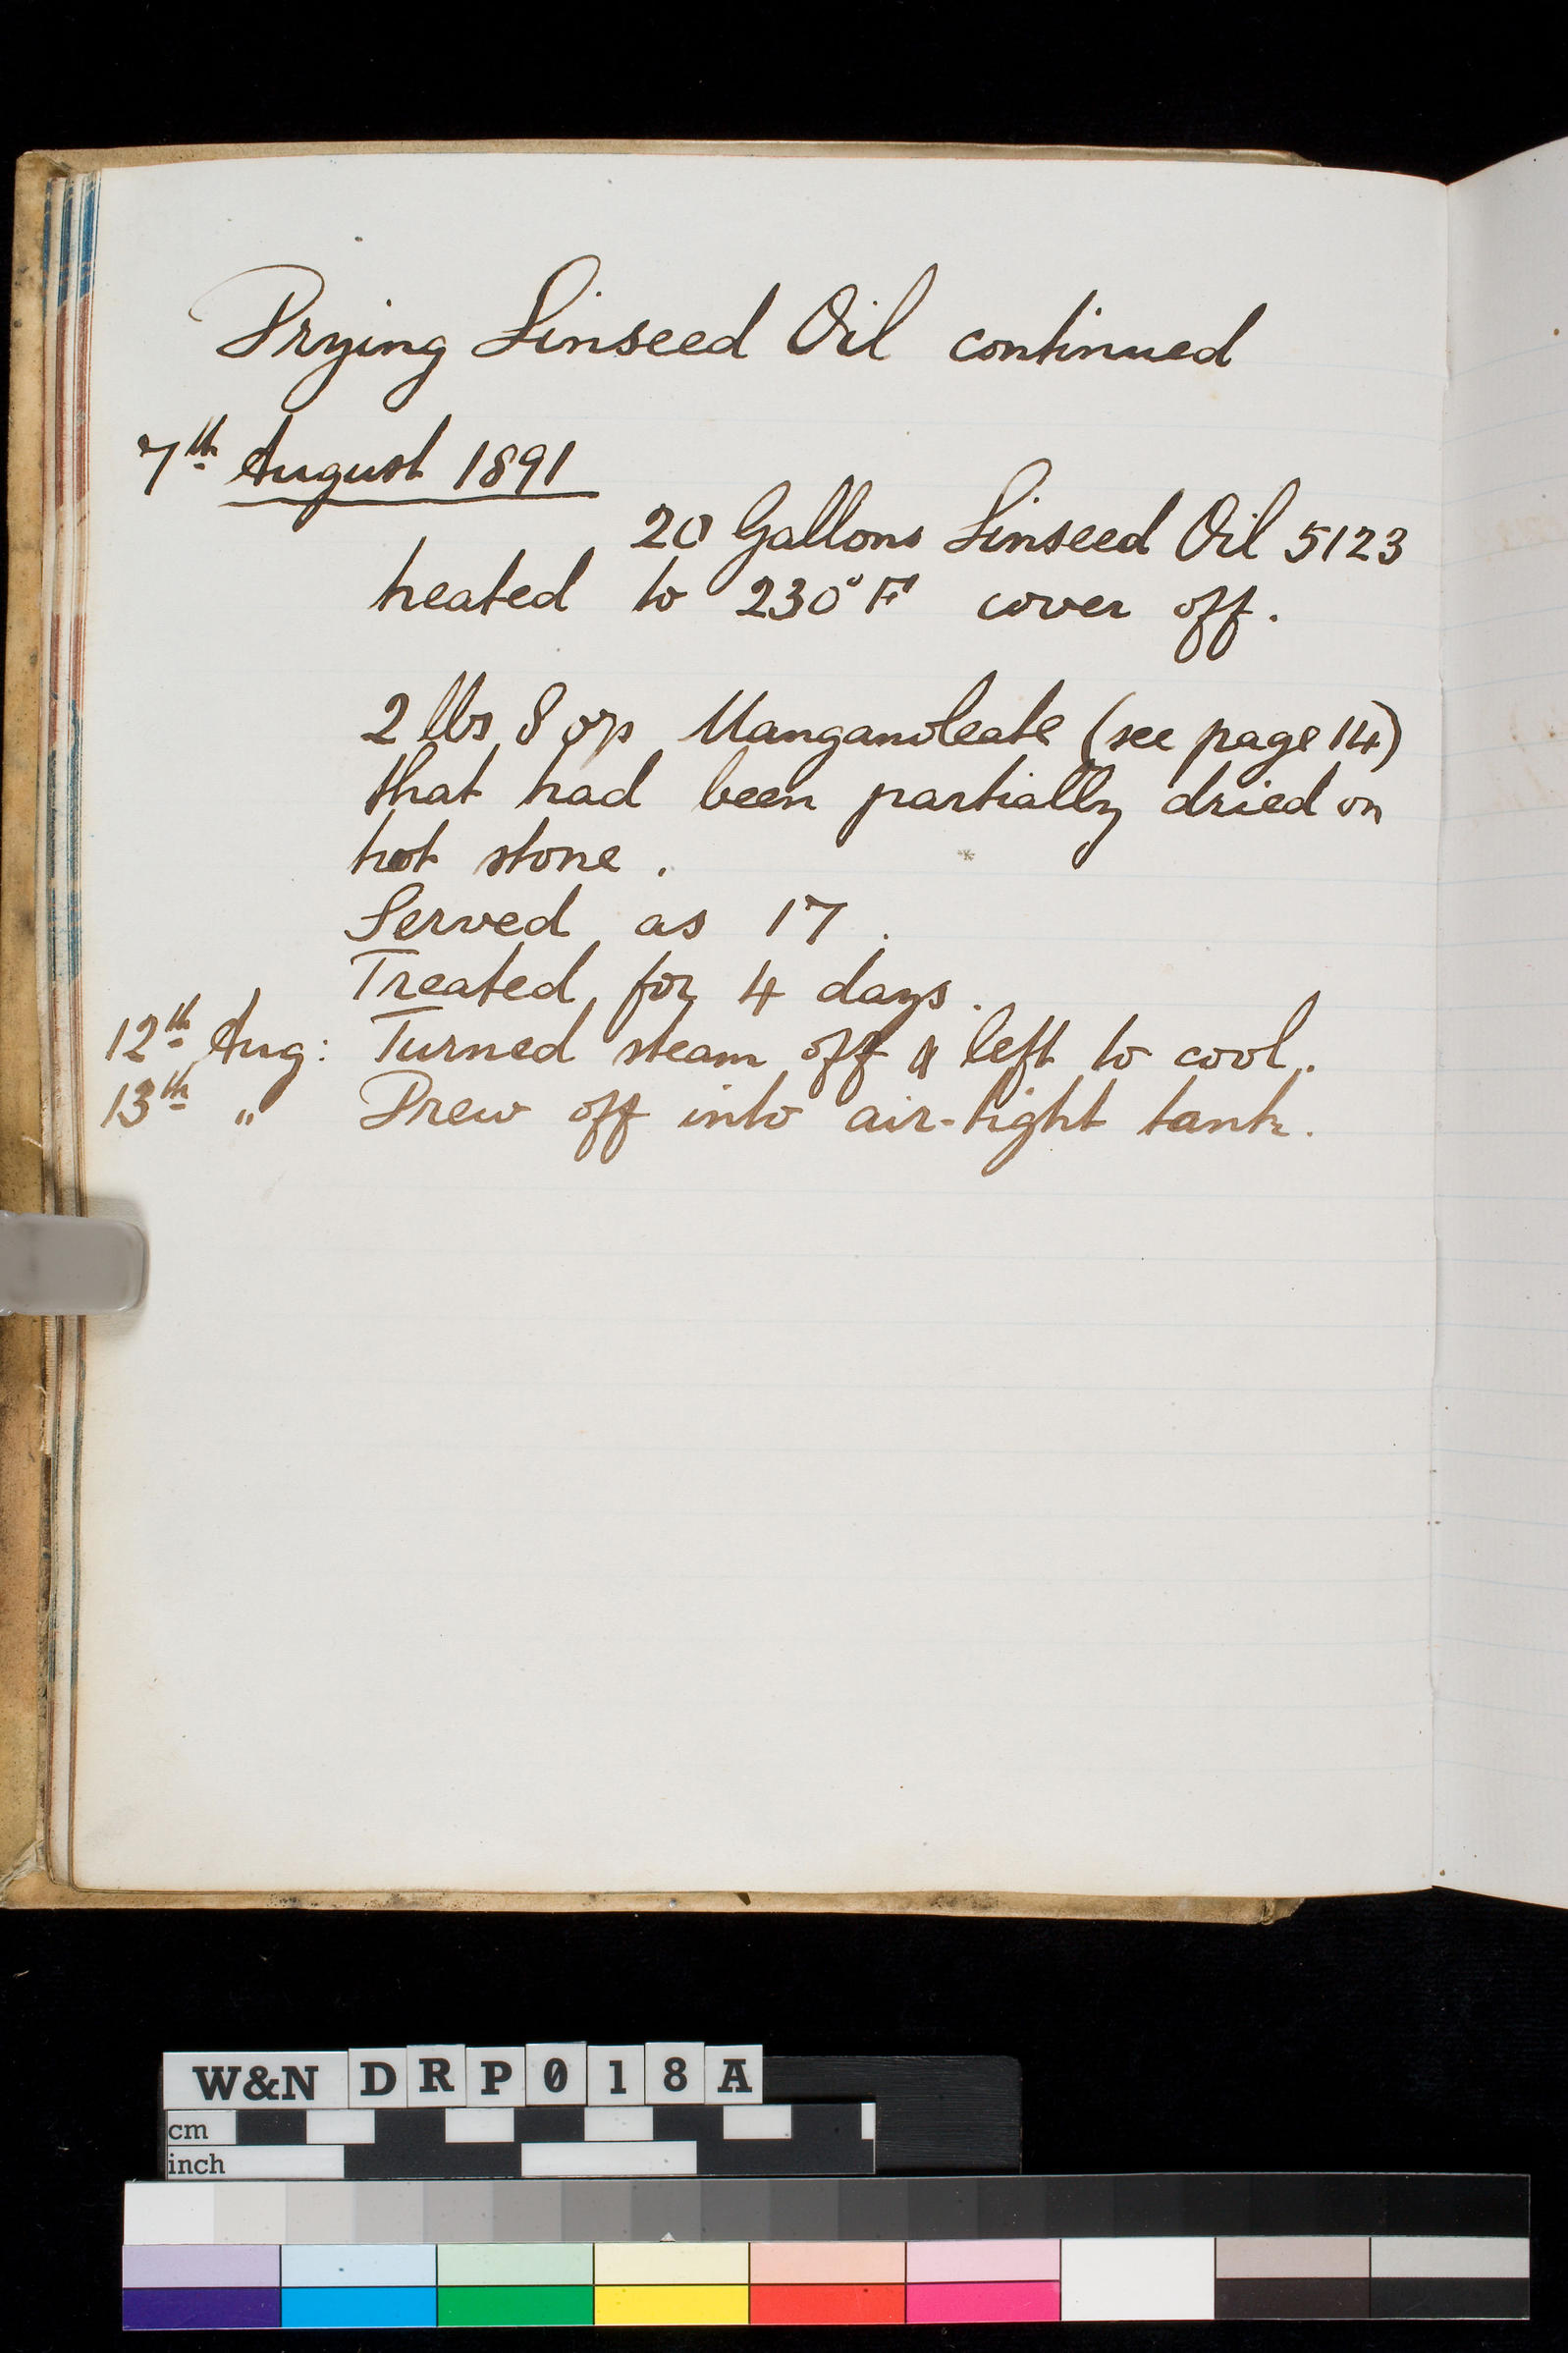 Drying Linseed Oil continued
7th August 1891
20 Gallons Linseed Oil 5123
heated to 230°F cover off.
2 lbs 8 ozs Manganoleate (see page 14)
that had been partially dried on
hot stone.
Served as 17.
Treated for 4 days.
12th Aug: Turned steam off & left to cool.
13th " Drew off into air-tight tank.
W&N DRP018A
cm
inch